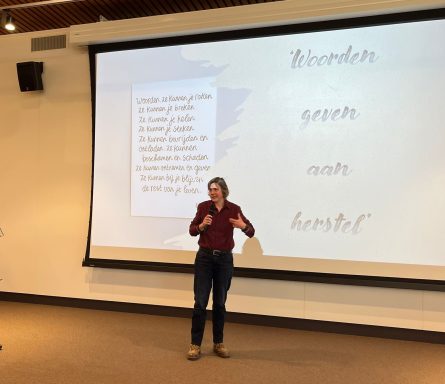 Woorden. Ze kunnen je raken
Ze kunnen je breken
Ze kunnen je helen
Ze kunnen je steken
Ze kunnen bevrijden en
ontladen. Ze kunnen
beschamen en schaden
Ze kunnen ontnemen en geven
Ze kunnen bij je blijven
de rest van je leven.
'Woorden
geven
aan
herstel'